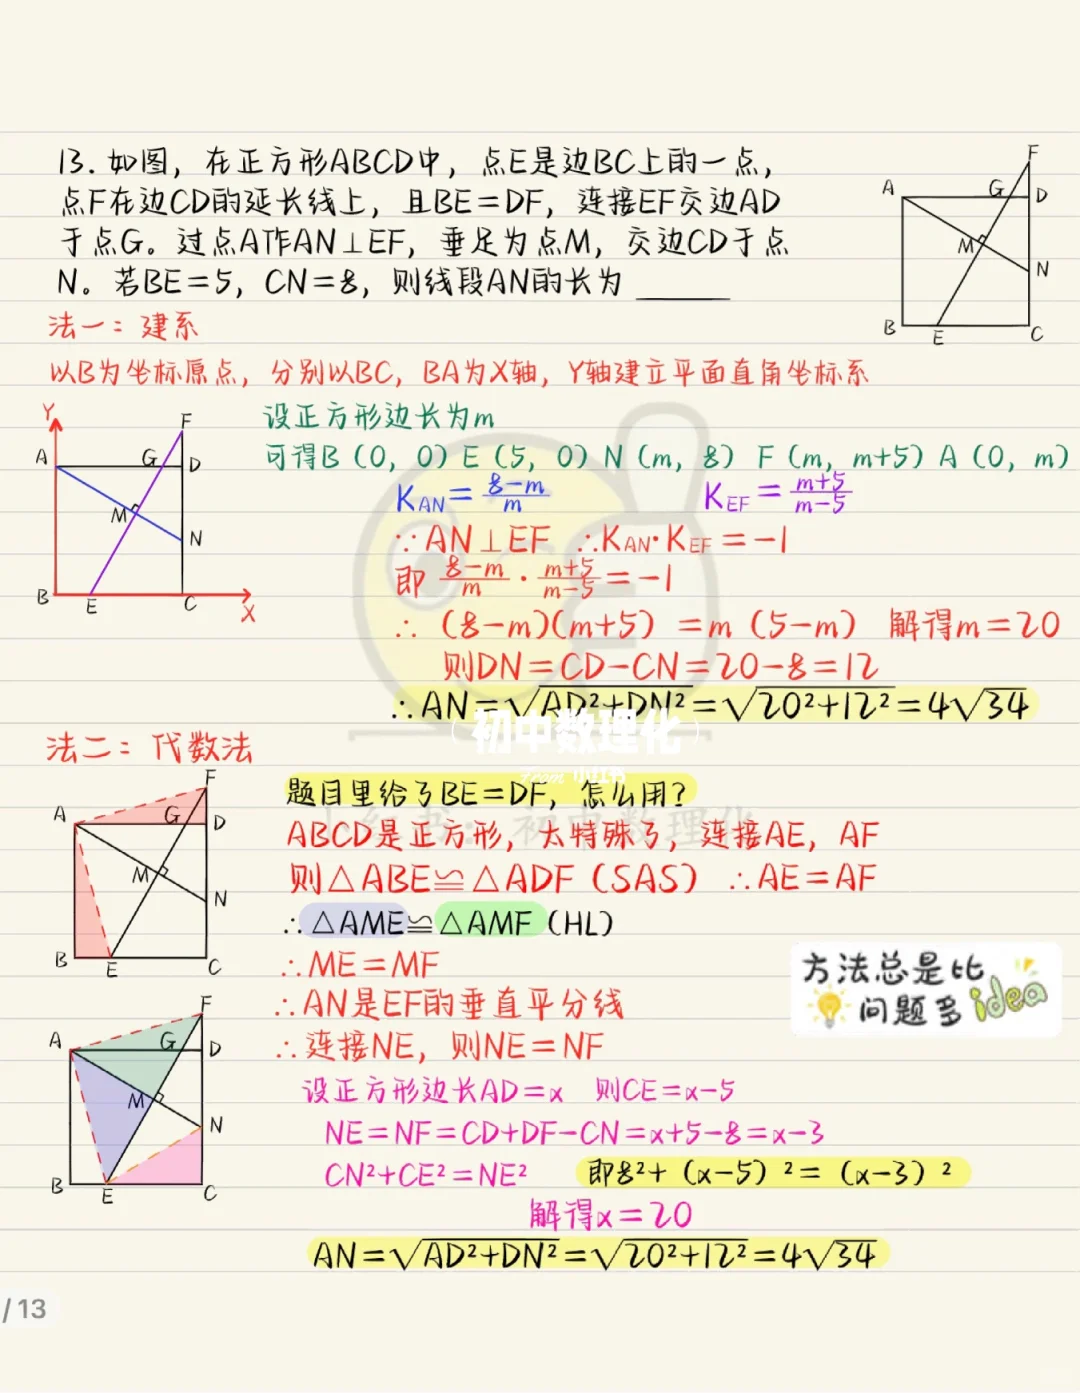 13. 如图，在正方形ABCD中，点E是边BC上的一点，
点F在边CD的延长线上，且BE=DF，连接EF交边AD
于点G。过点A作AN⊥EF，垂足为点M，交边CD于点
N。若BE=5，CN=8，则线段AN的长为 ______
F
A G D
M
N
B E C
法一：建系
以B为坐标原点，分别以BC，BA为X轴，Y轴建立平面直角坐标系
Y F
A G D
M
N
B E C X
设正方形边长为m
可得B（0，0）E（5，0）N（m，8）F（m，m+5）A（0，m）
K_AN=(8-m)/m K_EF=(m+5)/(m-5)
∵AN⊥EF ∴K_AN·K_EF=-1
即 (8-m)/m·(m+5)/(m-5)=-1
∴（8-m)(m+5）=m（5-m） 解得m=20
则DN=CD-CN=20-8=12
∴AN=√AD²+DN²=√20²+12²=4√34
初中数理化
法二：代数法
F
A G D
M
N
B E C
题目里给了BE=DF，怎么用？
ABCD是正方形，太特殊了，连接AE，AF
则△ABE≌△ADF（SAS） ∴AE=AF
∴△AME≌△AMF（HL）
∴ME=MF
∴AN是EF的垂直平分线
∴连接NE，则NE=NF
方法总是比
问题多 idea
F
A G D
M
N
B E C
设正方形边长AD=x 则CE=x-5
NE=NF=CD+DF-CN=x+5-8=x-3
CN²+CE²=NE² 即8²+（x-5）²=（x-3）²
解得x=20
AN=√AD²+DN²=√20²+12²=4√34
/13